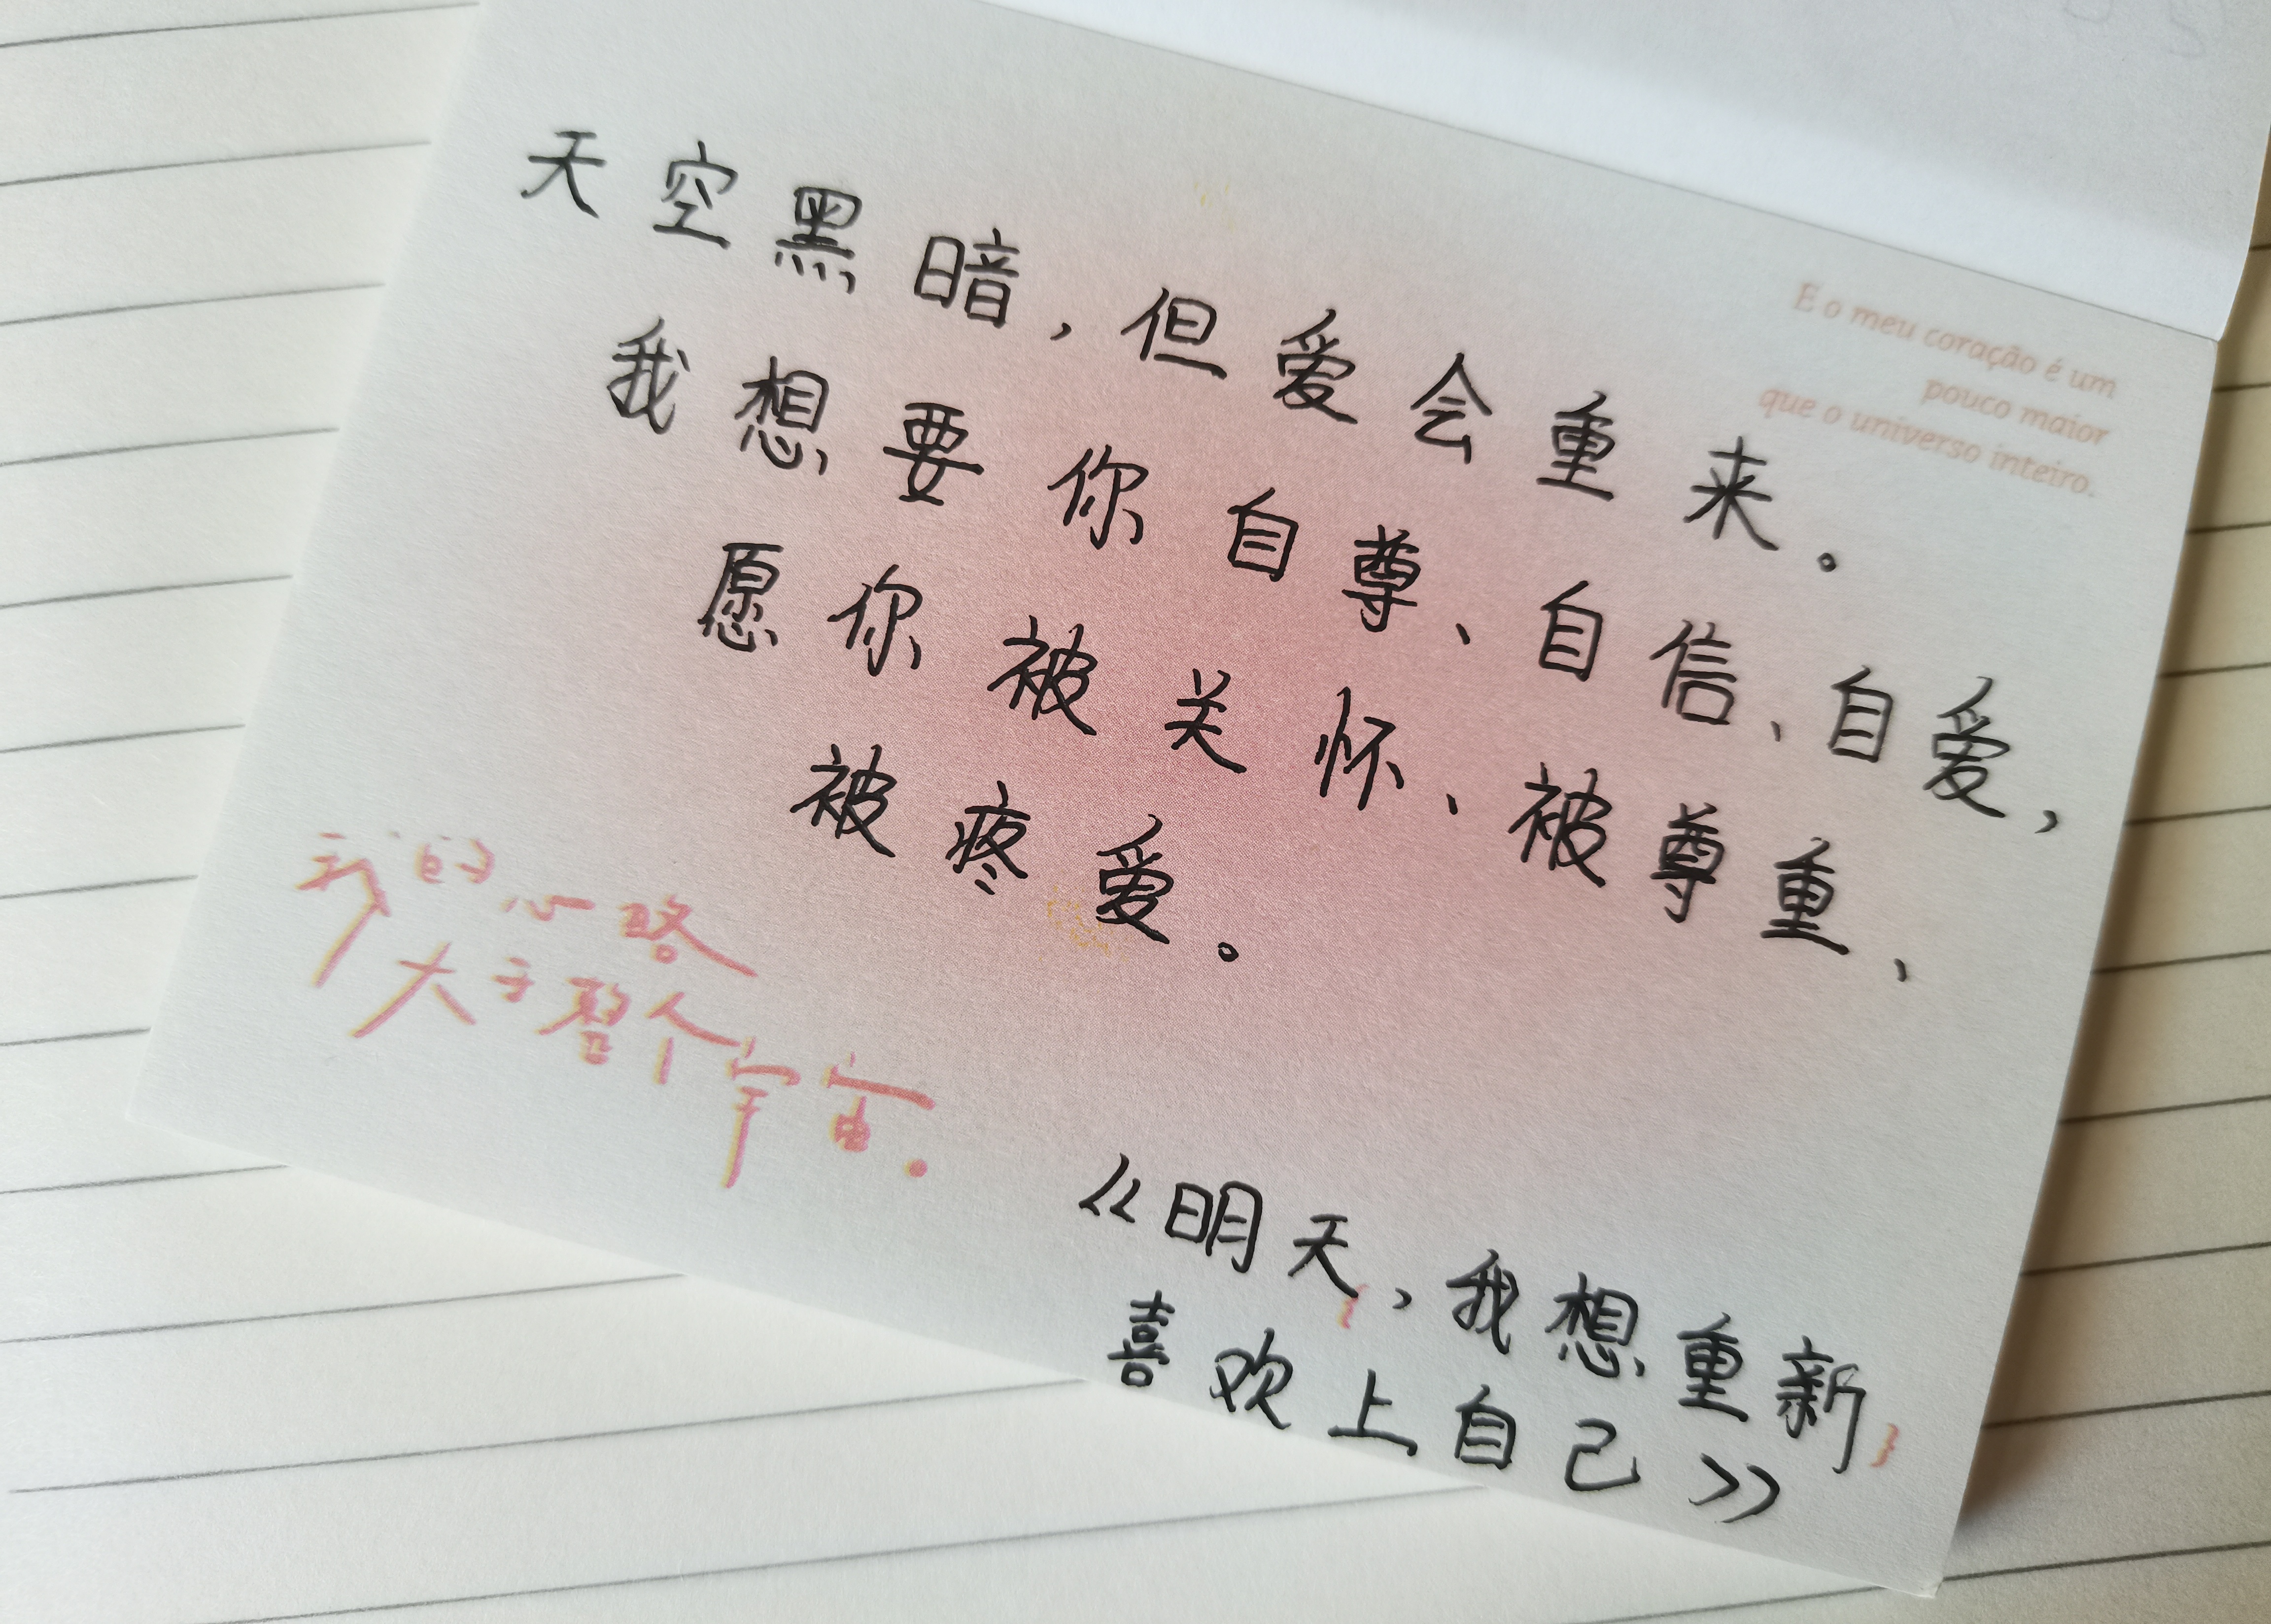 天空黑暗，但爱会重来。
E o meu coração é um
pouco maior
que o universo inteiro.
我想要你自尊、自信、自爱，
愿你被关怀、被尊重、
被疼爱。
我的心略
大于整个宇宙.
《明天，我想重新
喜欢上自己》